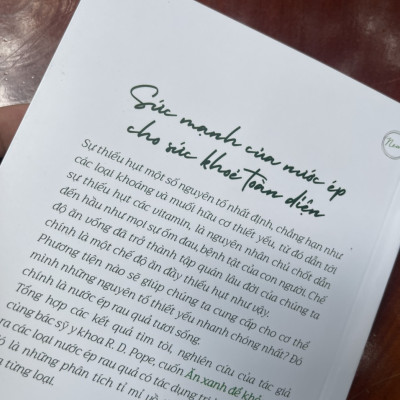 Sức mạnh của nước ép
cho sức khoẻ toàn diện
Sự thiếu hụt một số nguyên tố nhất định, chẳng hạn như
các loại khoáng và muối hữu cơ thiết yếu, từ đó dẫn tới
sự thiếu hụt các vitamin, là nguyên nhân chủ chốt dẫn
đến hầu như mọi sự ốm đau, bệnh tật của con người. Chế
độ ăn uống đã trở thành tập quán lâu đời của chúng ta
chính là một chế độ ăn đầy thiếu hụt như vậy.
Phương tiện nào sẽ giúp chúng ta cung cấp cho cơ thể
mình những nguyên tố thiết yếu nhanh chóng nhất? Đó
chính là nước ép rau quả tươi sống.
Tổng hợp các kết quả tìm tòi, nghiên cứu của tác giả
cùng bác sỹ y khoa R. D. Pope, cuốn Ăn xanh để
ra các loại nước ép rau quả có tác dụng trị
là những phân tích tỉ mỉ về
từng loại.